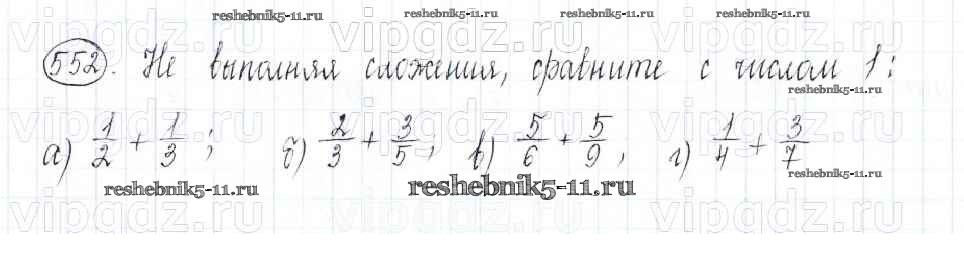 reshebnik5-11.ru reshebnik5-11.ru reshebnik5-11.ru
vipgdz.ru vipgdz.ru vipgdz.ru
552. Не выполняя сложения, сравните с числом 1:
reshebnik5-11.ru
vipgdz.ru vipgdz.ru vipgdz.ru
а) 1/2 + 1/3; б) 2/3 + 3/5; в) 5/6 + 5/9; г) 1/4 + 3/7
reshebnik5-11.ru reshebnik5-11.ru reshebnik5-11.ru
vipgdz.ru vipgdz.ru vipgdz.ru